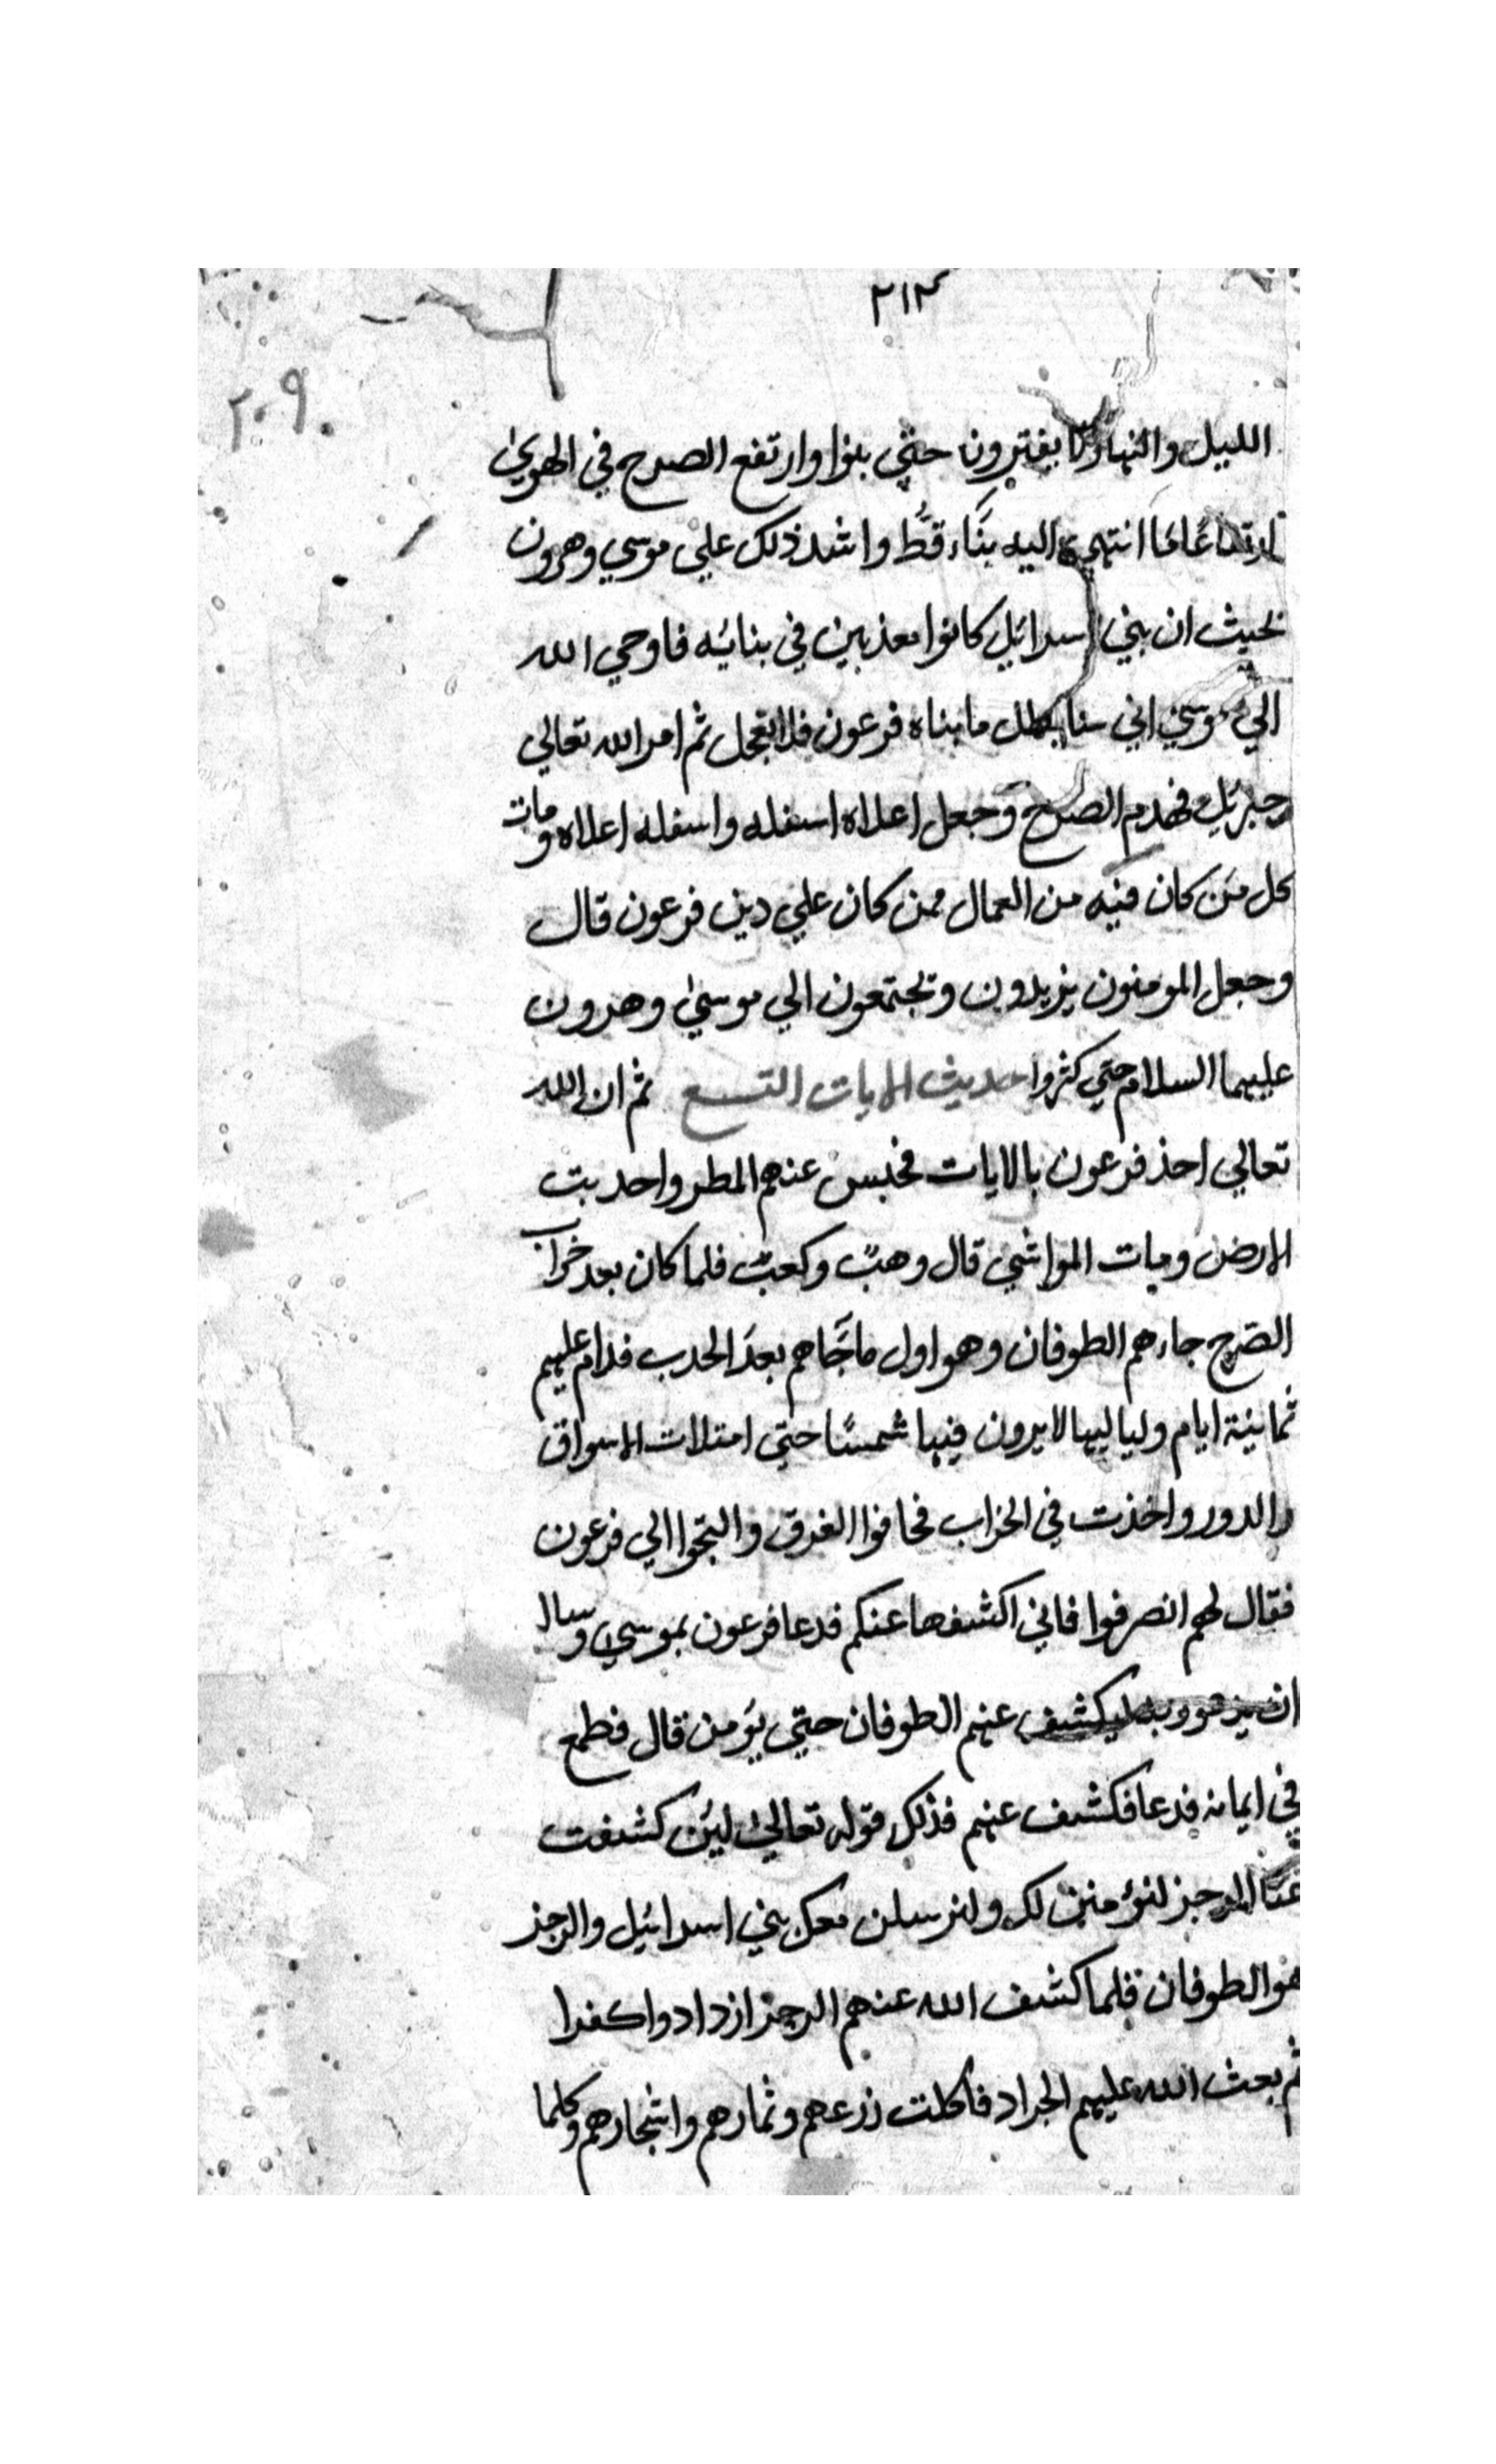 ٢١٢
٢٠٩
الليل والنهار لا يفترون حتي بنوا وارتفع الصرح في الهوي
ارتفاعًا ما انتهي اليه بنَاء قطُّ واشتد ذلك علي موسي وهرون
بحيث ان بني اسرائيل كانوا معذبين في بنائه فاوحي الله
الي موسي اني سابطل ما بناه فرعون فلا تعجل ثم امر الله تعالي
جبرئيل فهدم الصرح وجعل اعلاه اسفله واسفله اعلاه ومات
كل من كان فيه من العمال ممن كان علي دين فرعون قال
وجعل المومنون يزيدون وتجتمعون الي موسيٰ وهرون
عليهما السلام حتي كثروا حديث الايات التسع ثم ان الله
تعالي اخذ فرعون بالايات فحبس عنهم المطر واجدبت
الارض ومات المواشي قال وهبٌ وكعبٌ فلما كان بعد خراب
الصَرح جاءهم الطوفان وهو اول ما جَاهم بعدَ الجدب فدام عليهم
ثمانية ايام ولياليها لا يرون فيها شمسًا حتي امتلات الاسواق
والدور واخذت في الخراب فخافوا الغرق والتجوا الي فرعون
فقال لهم انصرفوا فاني اكشفها عنكم فدعا فرعون بموسي وسال
ان يدعو ربه ليكشف عنهم الطوفان حتي يؤمن قال فطمع
في ايمانه فدعا فكشف عنهم فذلك قوله تعالي لئن كشفت
عنَّا الرجز لنؤمنن لك ولنرسلن معك بني اسرائيل والرجز
هو الطوفان فلما كشف الله عنهم الرجز ازدادوا كفرا
ثم بعث الله عليهم الجراد فاكلت زرعهم وثمارهم واشجارهم وكلما